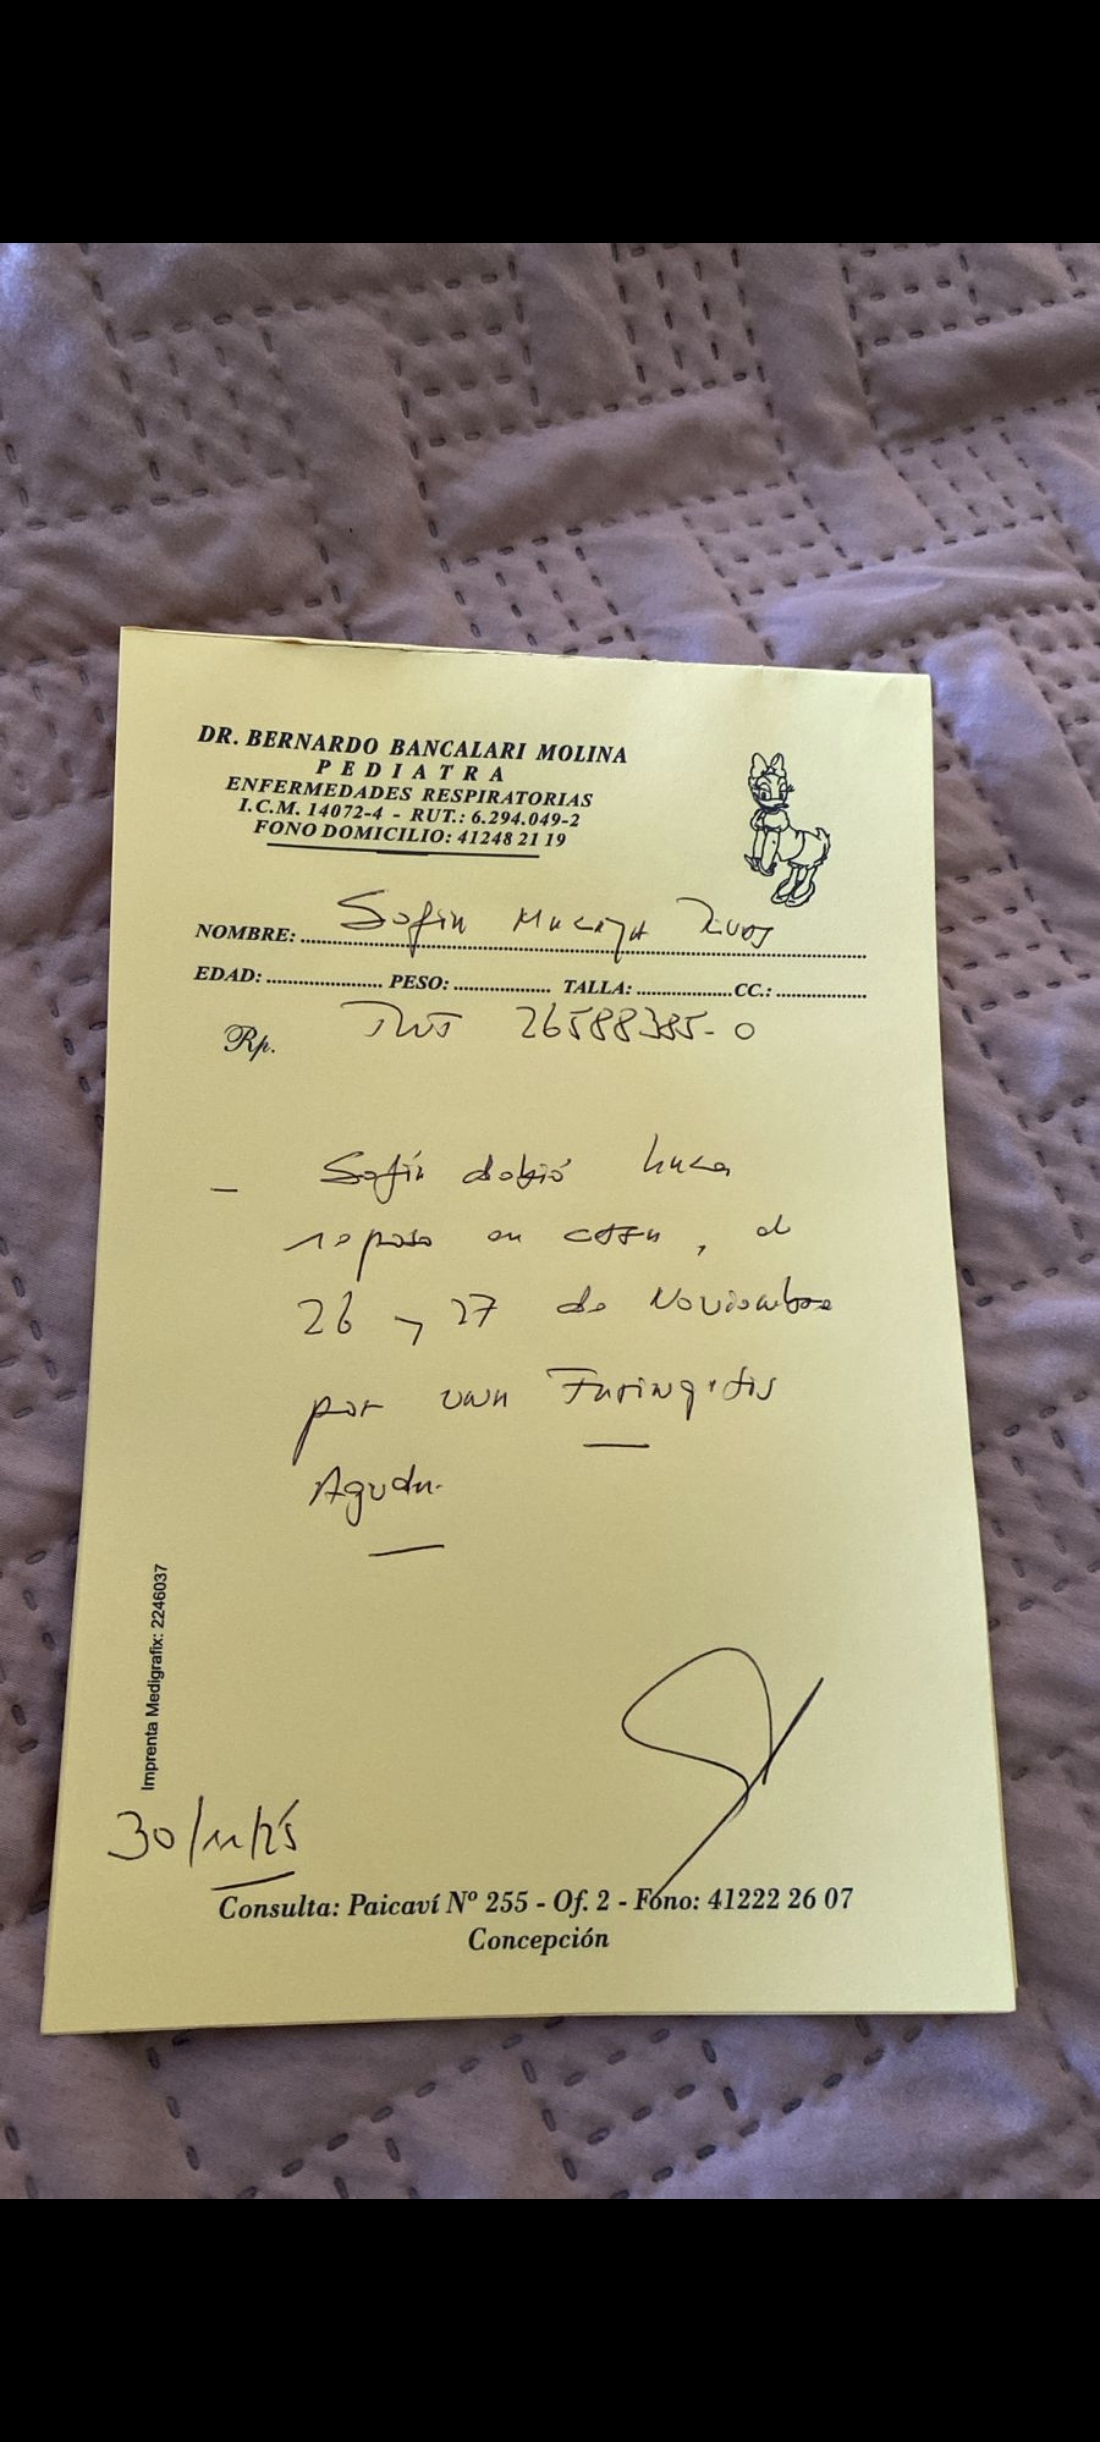 DR. BERNARDO BANCALARI MOLINA
PEDIATRA
ENFERMEDADES RESPIRATORIAS
I.C.M. 14072-4 - RUT.: 6.294.049-2
FONO DOMICILIO: 41248 21 19
NOMBRE: Sofia Macaya Rivas
EDAD: PESO: TALLA: CC.:
Rp. Rut 26588385-0
- Sofía debió hacer
reposo en casa, el
26 y 27 de Noviembre
por una Faringitis
Aguda.
Imprenta Medigrafix: 2246037
30/11/25
Consulta: Paicaví Nº 255 - Of. 2 - Fono: 41222 26 07
Concepción